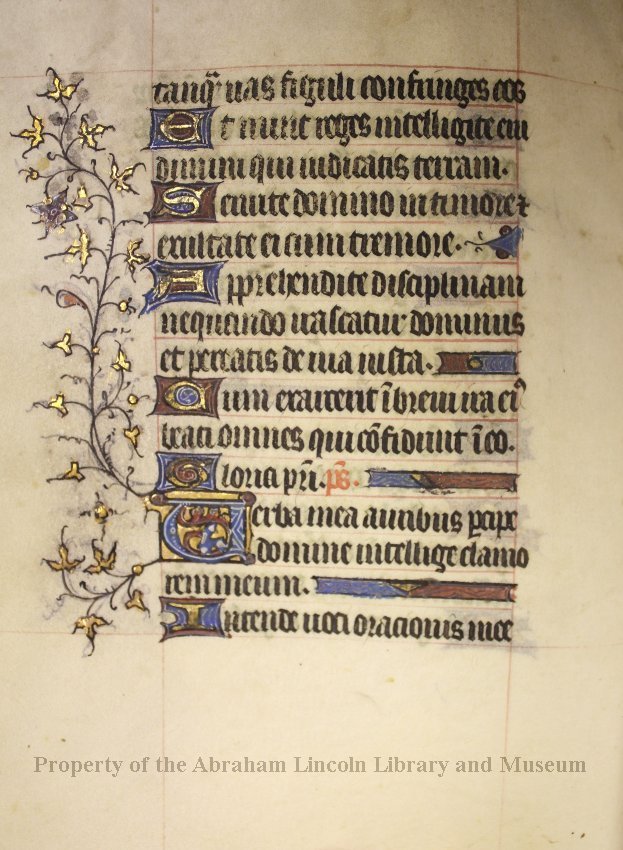 tanq̃ uas figuli confringes eos
Et nunc reges intelligite eru
dimini qui iudicatis terram.
Seruite domino in timore ⁊
exultate ei cum tremore.
Apprehendite disciplinam
nequando irascatur dominus
et pereatis de uia iusta.
Cum exarcerit ĩ breui ira eiꝰ
beati omnes qui cõfidunt ĩ eo.
Gloria pr̃i. ps̃.
Verba mea auribus ꝑcipe
domine intellige clamo
rem meum.
Intende uoci oracionis mee
Property of the Abraham Lincoln Library and Museum